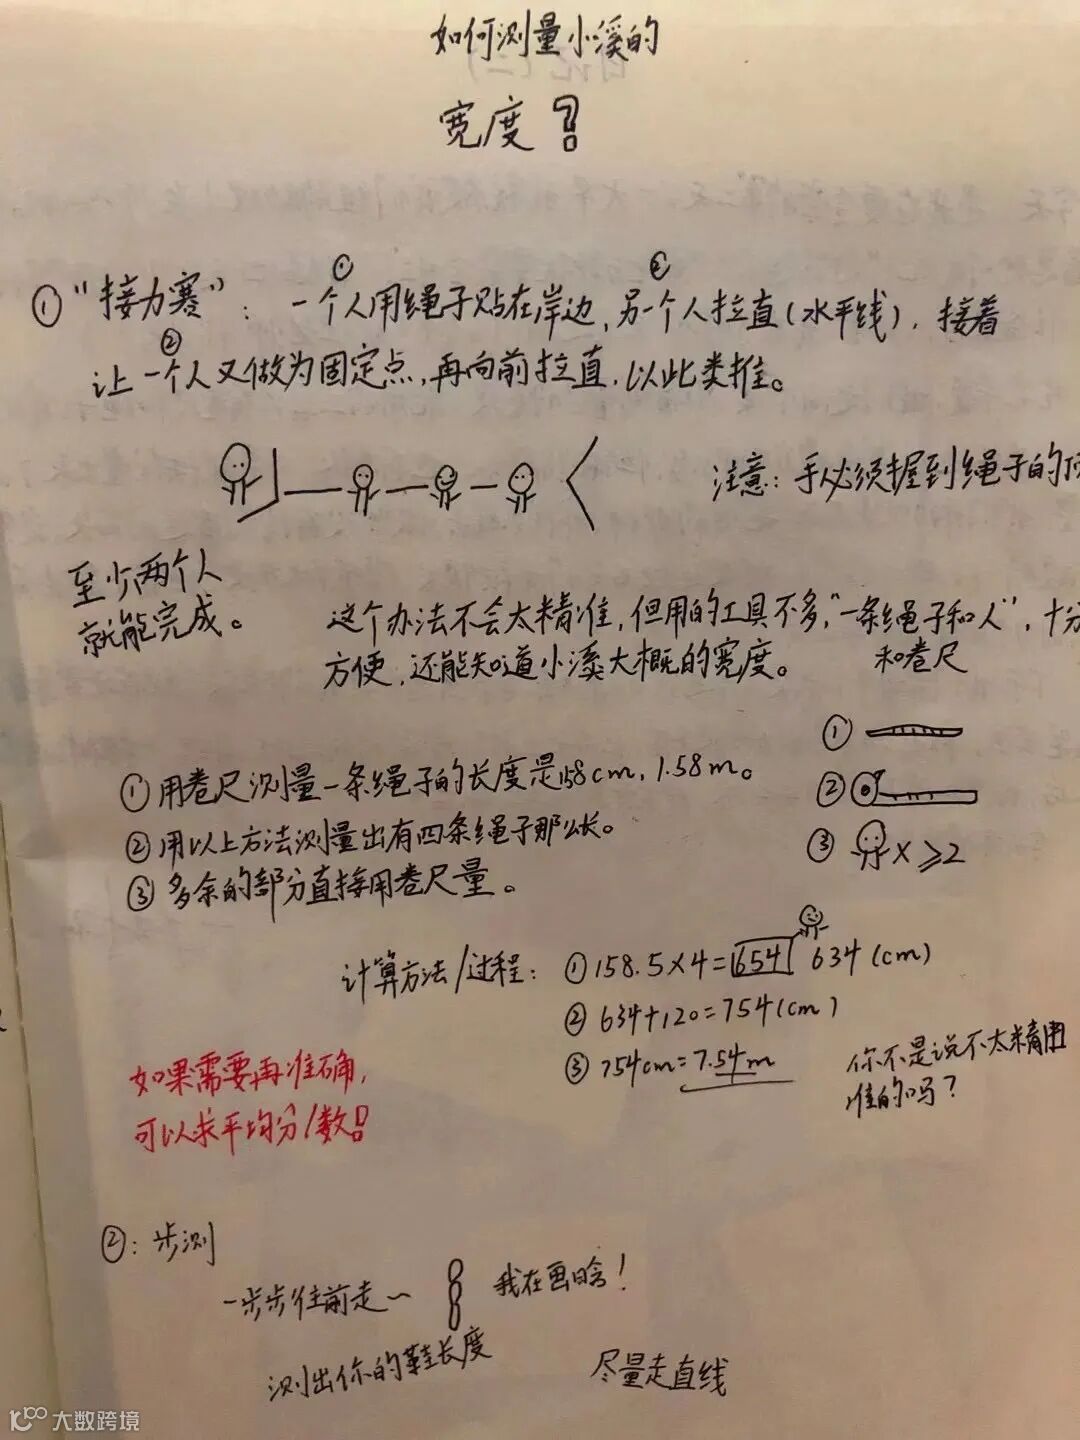 如何测量小溪的
宽度?
①"接力赛":一个人用绳子贴在岸边,另一个人拉直(水平线),接着
① ②
②
让一个人又做为固定点,再向前拉直,以此类推。
注意:手必须握到绳子的顶
至少两个人
就能完成。
这个办法不会太精准,但用的工具不多,"一条绳子和人",十分
和卷尺
方便,还能知道小溪大概的宽度。
①
②
③ X ≥2
①用卷尺测量一条绳子的长度是158cm,1.58m。
②用以上方法测量出有四条绳子那么长。
③多余的部分直接用卷尺量。
计算方法/过程:①158.5×4=654 634(cm)
②634+120=754(cm)
③754cm=7.54m
你不是说不太精
准的吗?
如果需要再准确,
可以求平均分/数!
②:步测
一步步往前走~
我在画啥!
测出你的鞋长度
尽量走直线
大数跨境